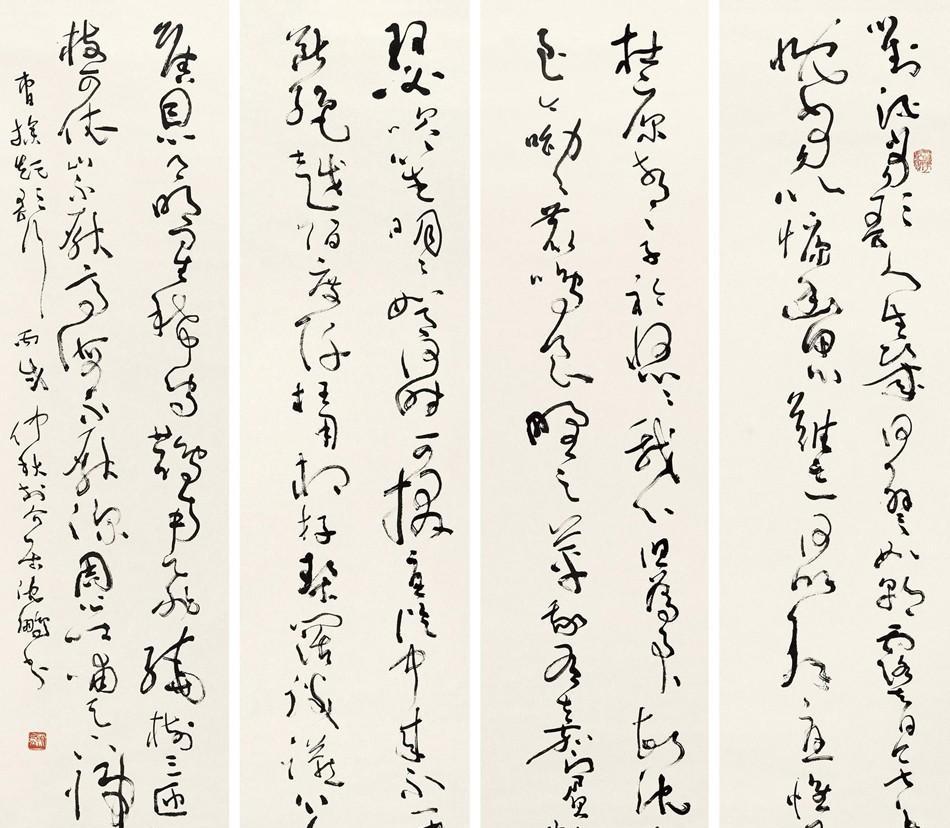 對酒當歌人生幾何譬如朝露去日苦多
慨當以慷幽思難忘何以解憂惟
杜康青々子衿悠々我心但為君故沈
至今呦々鹿鳴食野之苹我有嘉賓
瑟吹笙明々如月何時可掇憂從中來不
斷絕越陌度阡枉用相存契闊談讌心
舊恩月明星稀烏鵲南飛繞樹三匝
枝可依山不厭高海不厭深周公吐哺天下歸
曹操短歌行 丙戌仲秋於介居沈鵬書